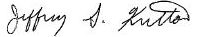 Jeffrey S. Hutton